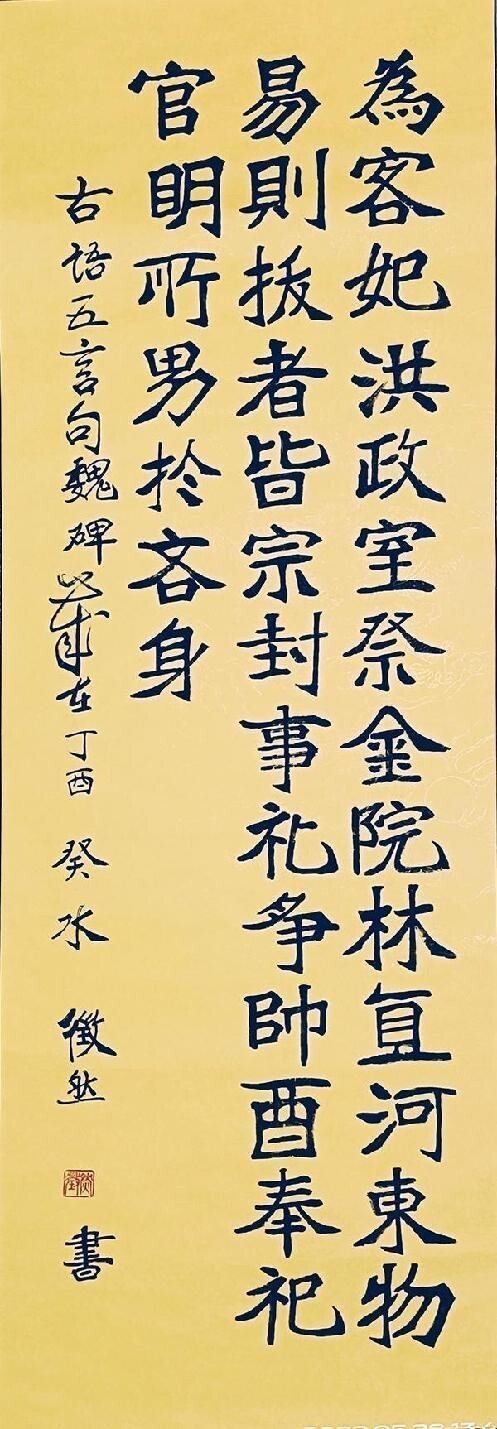 為客妃洪政室祭金院林直河東物
易則拔者皆宗封事礼爭帥酉奉祀
官明所男於吝身
古语五言句魏碑 在丁酉 癸水 徵然 書